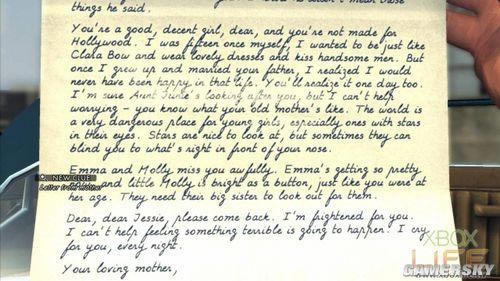 things he said.
You're a good, decent girl, dear, and you're not made for
Hollywood. I was fifteen once myself, I wanted to be just like
Clara Bow and wear lovely dresses and kiss handsome men. But
once I grew up and married your father, I realized I would
never have been happy in that life. You'll realize it one day too.
I'm sure Aunt June's looking after you, but I can't help
worrying - you know what your old mother's like. The world is
a very dangerous place for young girls, especially ones with stars
in their eyes. Stars are nice to look at, but sometimes they can
blind you to what's right in front of your nose.
NEW CLUE
Letter from Mother
Emma and Molly miss you awfully. Emma's getting so pretty
and little Molly is bright as a button, just like you were at
her age. They need their big sister to look out for them.
Dear, dear Jessie, please come back. I'm frightened for you.
I can't help feeling something terrible is going to happen. I cry
for you, every night.
Your loving mother,
XBOX
LIFE
GAMERSKY